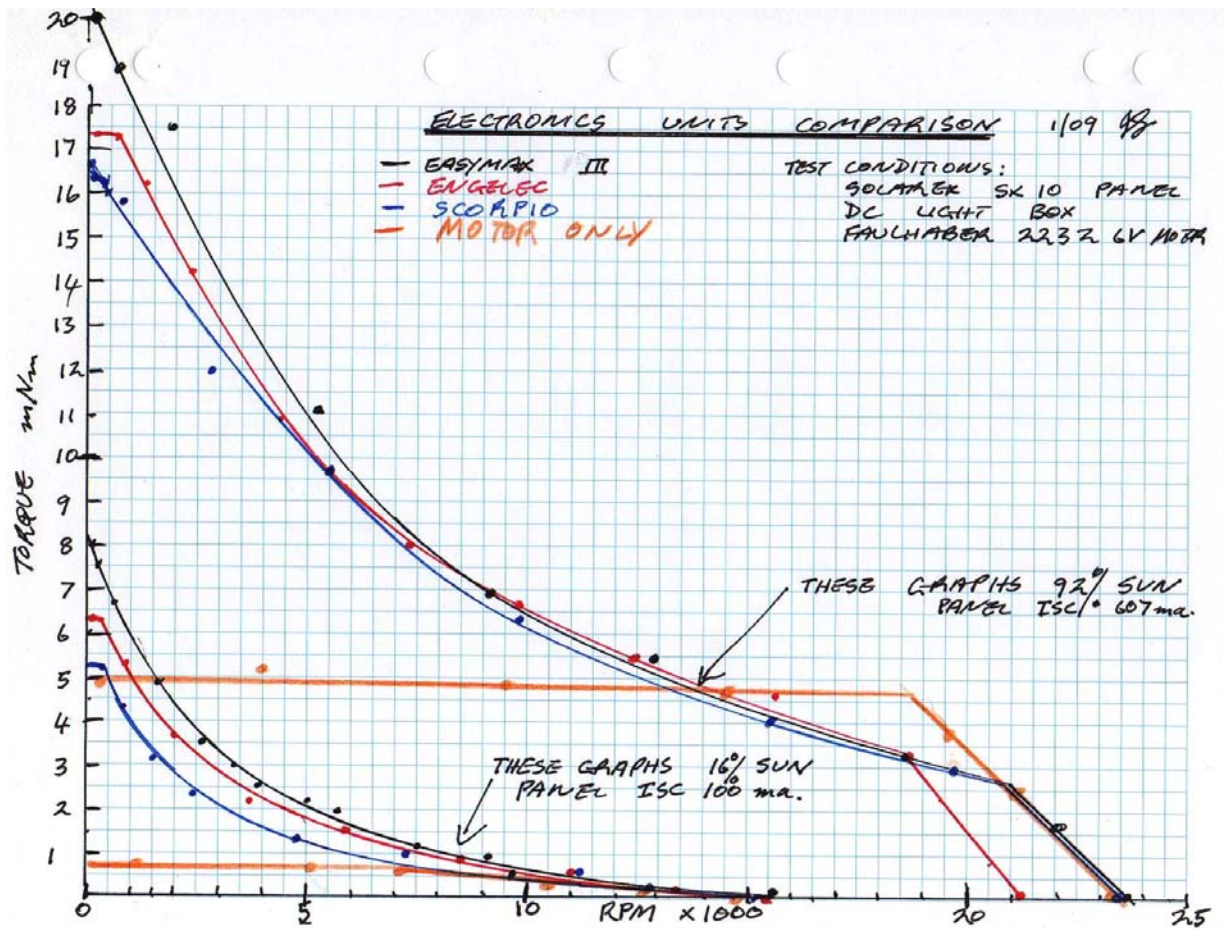 ELECTRONICS UNITS COMPARISON 1/09
EASYMAX III
ENGELEC
SCORPIO
MOTOR ONLY
TEST CONDITIONS:
SOLAREX SX 10 PANEL
DC LIGHT BOX
FAULHABER 2232 6V MOTR
20
19
18
17
16
15
14
13
12
11
10
9
8
7
6
5
4
3
2
1
TORQUE mNm
THESE GRAPHS 92% SUN
PANEL ISC 607 ma.
THESE GRAPHS 16% SUN
PANEL ISC 100 ma.
0 5 10 20 25
RPM x1000